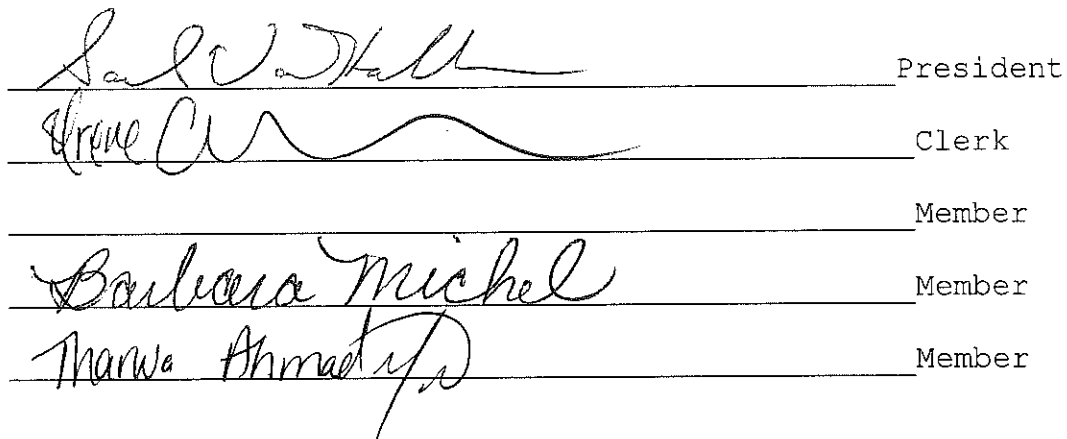 President
Irene Clerk
Member
Barbara Michel Member
Ahmad Member